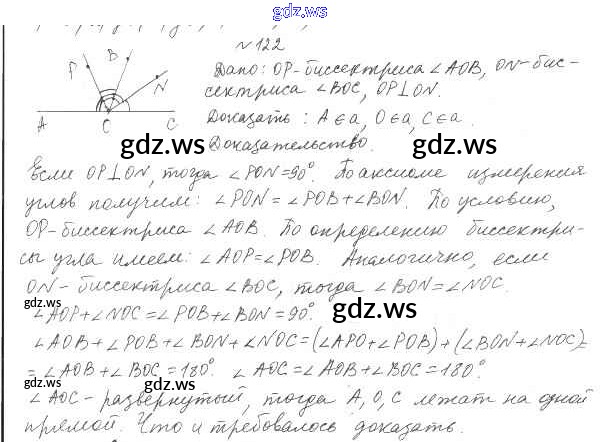 gdz.ws
№122
P B N
A C C
Дано: OP-биссектриса ∠AOB, ON-бис-
сектриса ∠BOC, OP⊥ON.
Доказать: A∈a, O∈a, C∈a.
gdz.ws gdz.ws
Доказательство.
Если OP⊥ON, тогда ∠PON=90°. По аксиоме измерения
углов получим: ∠PON=∠POB+∠BON. По условию,
gdz.ws
OP-биссектриса ∠AOB. По определению биссектри-
сы угла имеем: ∠AOP=∠POB. Аналогично, если
ON-биссектриса ∠BOC, тогда ∠BON=∠NOC.
gdz.ws gdz.ws
∠AOP+∠NOC=∠POB+∠BON=90°.
∠AOB+∠POB+∠BON+∠NOC=(∠APO+∠POB)+(∠BON+∠NOC)=
=∠AOB+∠BOC=180°. ∠AOC=∠AOB+∠BOC=180°.
gdz.ws
∠AOC-развернутый, тогда A, O, C лежат на одной
прямой. Что и требовалось доказать.
gdz.ws gdz.ws
gdz.ws